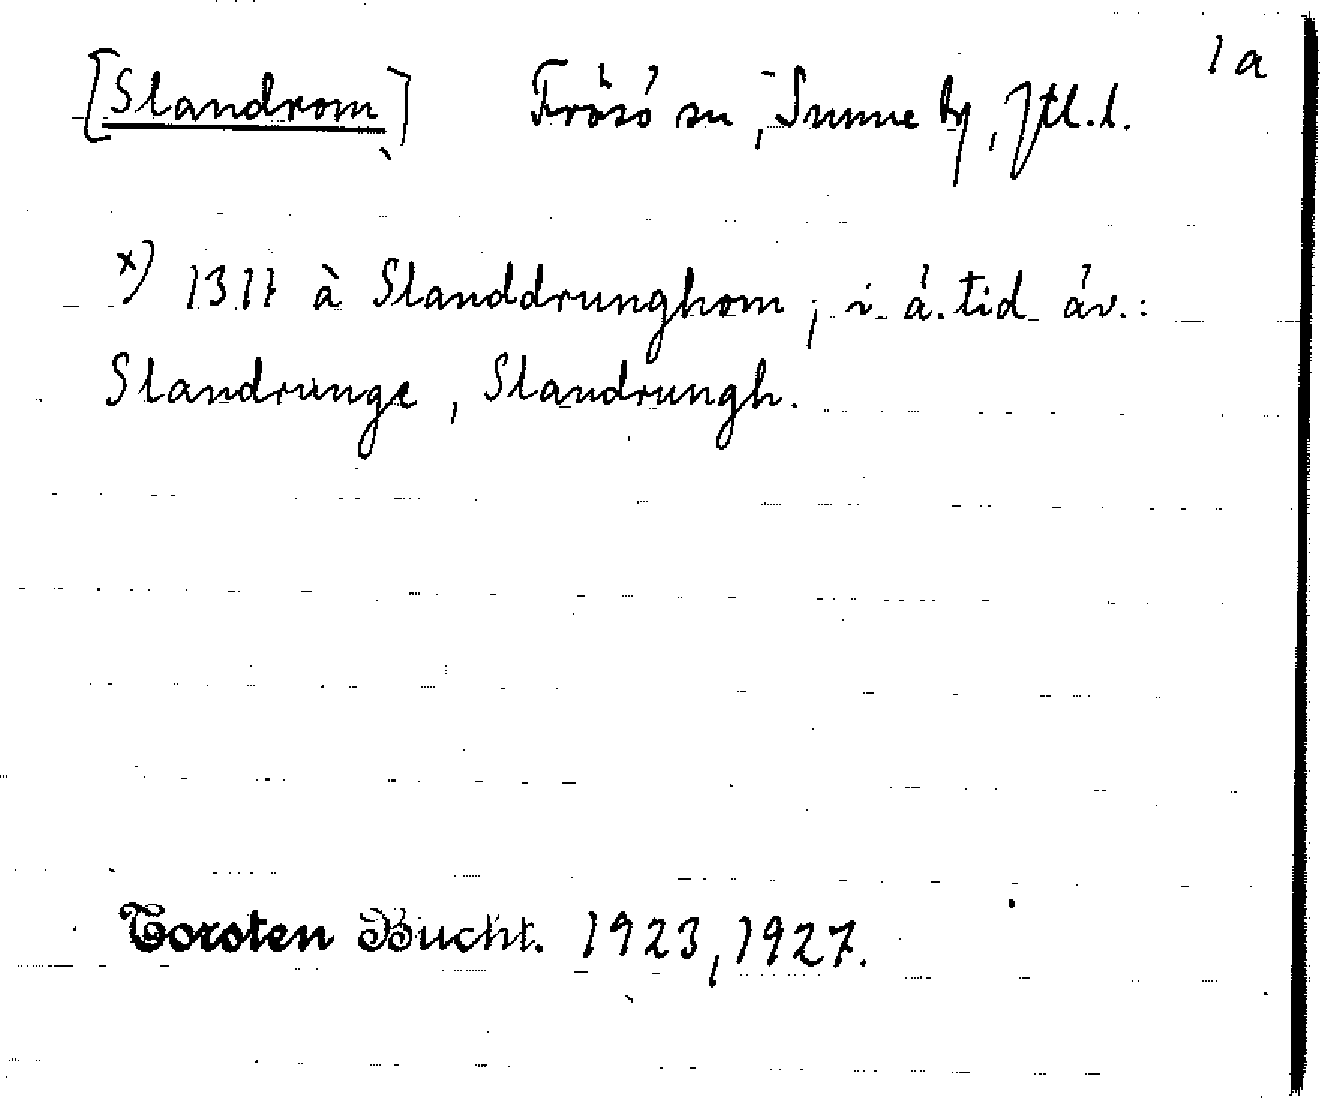 1 a
[Slandrom] Frösö sn, Sunne tg, Jtl. l.
x) 1311 à Slanddrunghom, i ä. tid äv.:
Slandrunge, Slandrungh.
Torsten Bucht. 1923, 1927.